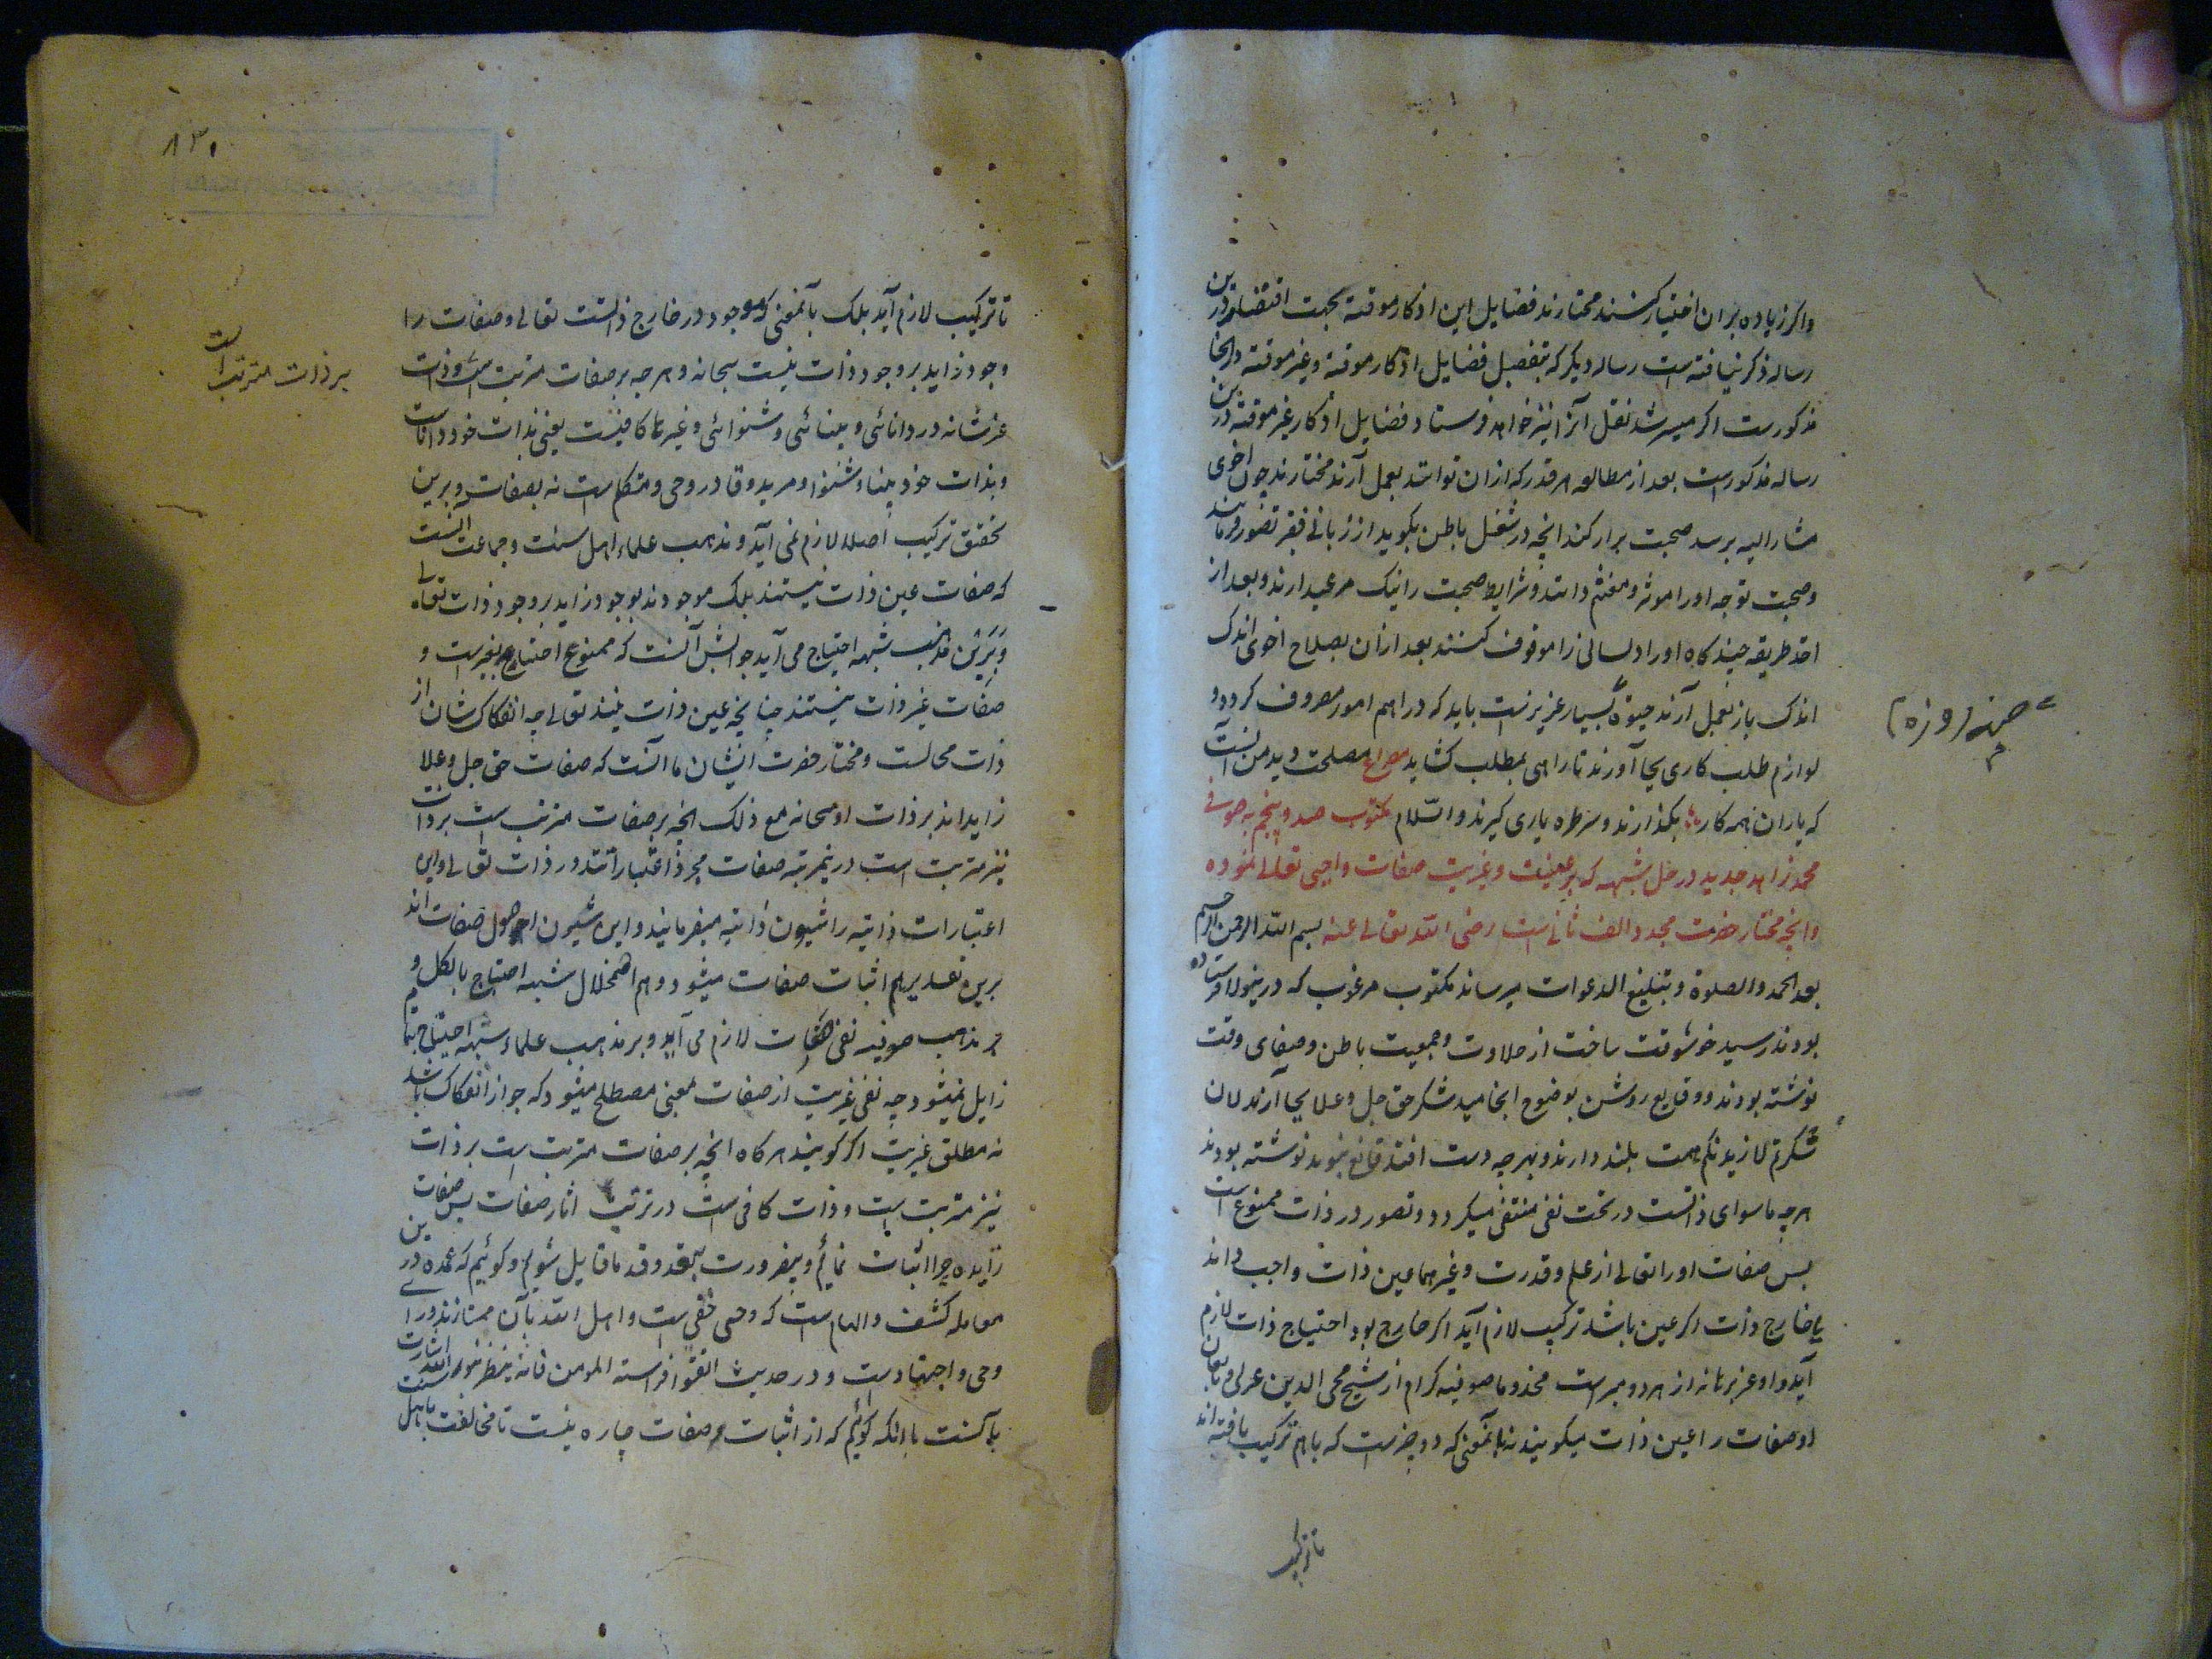 واکر زیاده بران اختیار کنند مختارند فضایل این اذکار موقته بجهت اقتضا درین
رساله ذکر نیافته است رساله دیکر که بتفصیل فضایل اذکار موقته و غیر موقته در انجا
مذکورست اکر میسر شد نقل آنرا نیز خواهد فرستاد فضایل اذکار غیر موقته درین
رساله مذکورست بعد از مطالعه هر قدر که ازان توانند بعمل آرند مختارند چون اخوی
مشار الیه برسد صحبت برار کنند انچه در شغل باطن بکوید از زبانی فقیر تصور فرمایند
و صحبت توجه او را موثر و مغتنم دانند و شرایط صحبت را نیک مرعیدارند و بعد از
اخذ طریقه چند کاه اوراد لسانی را موقوف کنند بعد ازان بصلاح اخوی اندک
اندک باز بعمل آرند حیوة بسیار عزیزست باید که در اهم امور مصروف کردد و
لوازم طلب کاری بجا آورند تا راهی بمطلب کشاید مصراع مصلحت دید من آنست
که یاران همه کار بکذارند و سر طره یاری کیرند والسلام مکتوب صد و پنجم به صوفی
محمد زاهد جدید در حل شبهه که بر عینیت و غیریت صفات واجبی تعالی نموده
وانچه مختار حضرت مجدد الف ثانی است رضی الله تعالی عنه بسم الله الرحمن الرحیم
بعد الحمد والصلوة و تبلیغ الدعوات میرساند مکتوب مرغوب که درینولا فرستاده
بودند رسید خوشوقت ساخت از حلاوت و جمعیت باطن و صفای وقت
نوشته بودند و وقایع روشن بوضوح انجامید شکر حق جل و علا بجا آرند لان
شکرتم لازیدنکم همت بلند دارند و بهر چه دست افتد قانع نبوند نوشته بودند
هر چه ماسوای ذاتست در تحت نفی منتفی میکردد و تصور در ذات ممنوع است
پس صفات او را تعالی از علم و قدرت و غیرهما عین ذات واجب داند
یا خارج ذات اکر عین باشد ترکیب لازم آید اکر خارج بود احتیاج ذات لازم
آید و او عز برهانه از هر دو مبراست مخدوما صوفیه کرام از شیخ محی الدین عربی و تابعان
او صفات را عین ذات میکویند نه بآنمعنی که دو چیزست که باهم ترکیب یافته اند
تا ترکیب
۸۳
تا ترکیب لازم آید بلک بآنمعنی که موجود در خارج ذاتست تعالی و صفات را
وجود زاید بر وجود ذات نیست سبحانه و هر چه بر صفات مترتب است و ذات
بر ذات مترتب است
عز شانه در دانائی و بینائی و شنوائی و غیرها کافیست یعنی بذات خود داناست
و بذات خود بینا و شنوا و مرید و قادر و حی و متکلم است نه بصفات و برین
تحقیق ترکیب اصلا لازم نمی آید و مذهب علماء اهل سنت و جماعت آنست
که صفات عین ذات نیستند بلک موجودند بوجود زاید بر وجود ذات تعالی
و برین مذهب شبهه احتیاج می آید جوابش آنست که ممنوع احتیاج بغیرست و
صفات غیر ذات نیستند چنانچه عین ذات نیند تعالی چه انفکاک شان از
ذات محالست و مختار حضرت ایشان ما آنست که صفات حق جل و علا
زاید اند بر ذات او سبحانه مع ذلک انچه بر صفات مترتب است بر ذات
نیز مترتب است درینمرتبه صفات مجرد اعتبارانند در ذات تعالی و این
اعتبارات ذاتیه را شیون ذاتیه میفرمایند و این شیون اصول صفات اند
برین تقدیر هم اثبات صفات میشود و هم اضمحلال شبهه احتیاج بالکل و
بر مذهب صوفیه نفی صفات لازم می آید و بر مذهب علماء شبهه احتیاج بتمام
زایل نمیشود چه نفی غیریت از صفات بمعنی مصطلح میشود که جواز انفکاک باشد
نه مطلق غیریت اکر کویند هر کاه انچه بر صفات مترتب است بر ذات
نیز مترتب است و ذات کافی است در ترتب اثار صفات پس صفات
زایده چرا اثبات نمائیم و بیضرورت بتعدد قدما قایل شویم و کوئیم که عمده درین
معامله کشف و الهام است که وحی خفی است و اهل الله بآن ممتازند و رای
وحی و اجتهادست و در حدیث اتقوا فراسة المومن فانه ینظر بنور الله اشارت
بآنست یا انکه کوئیم که از اثبات صفات چاره نیست تا مخالفت باهل سنت